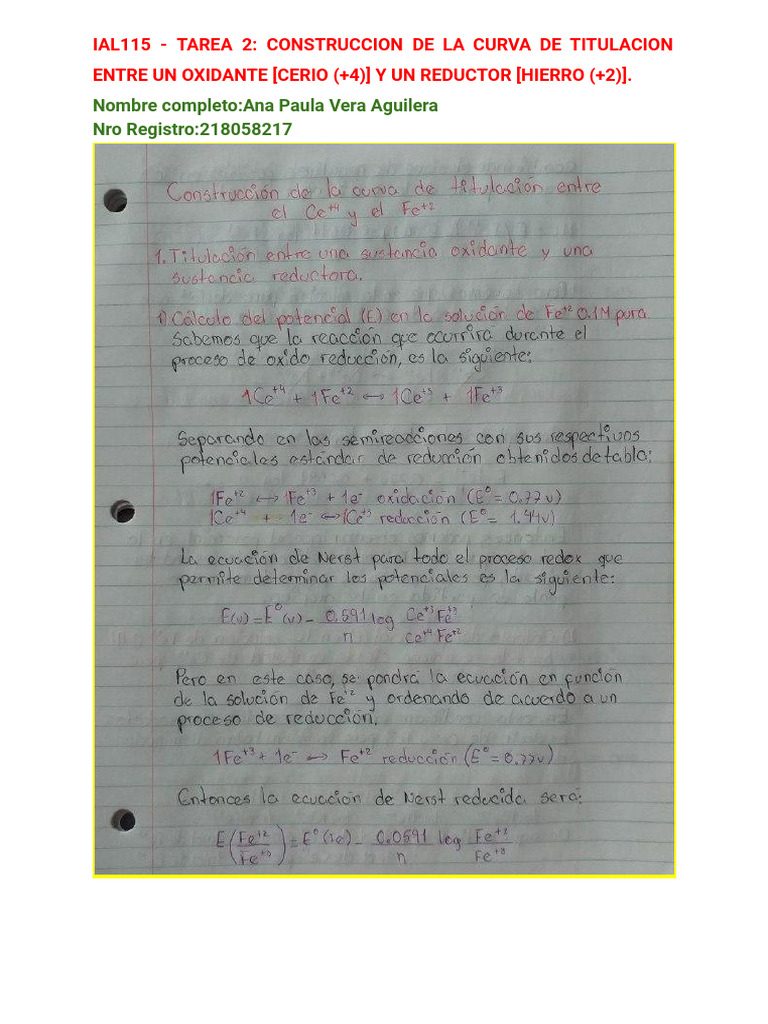 IAL115 - TAREA 2: CONSTRUCCION DE LA CURVA DE TITULACION
ENTRE UN OXIDANTE [CERIO (+4)] Y UN REDUCTOR [HIERRO (+2)].
Nombre completo:Ana Paula Vera Aguilera
Nro Registro:218058217
Construcción de la curva de titulación entre
el Ce⁺⁴ y el Fe⁺²
1. Titulación entre una sustancia oxidante y una
sustancia reductora.
1) Cálculo del potencial (E) en la solución de Fe⁺² 0.1M pura
Sabemos que la reacción que ocurrira durante el
proceso de oxido reducción, es la siguiente:
1Ce⁺⁴ + 1Fe⁺² ↔ 1Ce⁺³ + 1Fe⁺³
Separando en las semireacciones con sus respectivos
potenciales estándar de reducción obtenidos de tabla:
1Fe⁺² ↔ 1Fe⁺³ + 1e⁻ oxidación (E° = 0.77v)
1Ce⁺⁴ + 1e⁻ ↔ 1Ce⁺³ reducción (E° = 1.44v)
La ecuación de Nerst para todo el proceso redox que
permite determinar los potenciales es la siguiente:
E(v) = E°(v) - 0.591 log Ce⁺³ Fe⁺³
n Ce⁺⁴ Fe⁺²
Pero en este caso, se pondrá la ecuación en función
de la solución de Fe⁺² y ordenando de acuerdo a un
proceso de reducción.
1Fe⁺³ + 1e⁻ ↔ Fe⁺² reducción (E° = 0.77v)
Entonces la ecuación de Nerst reducida sera:
E (Fe⁺² = E° - 0.0591 log
Fe⁺³) n